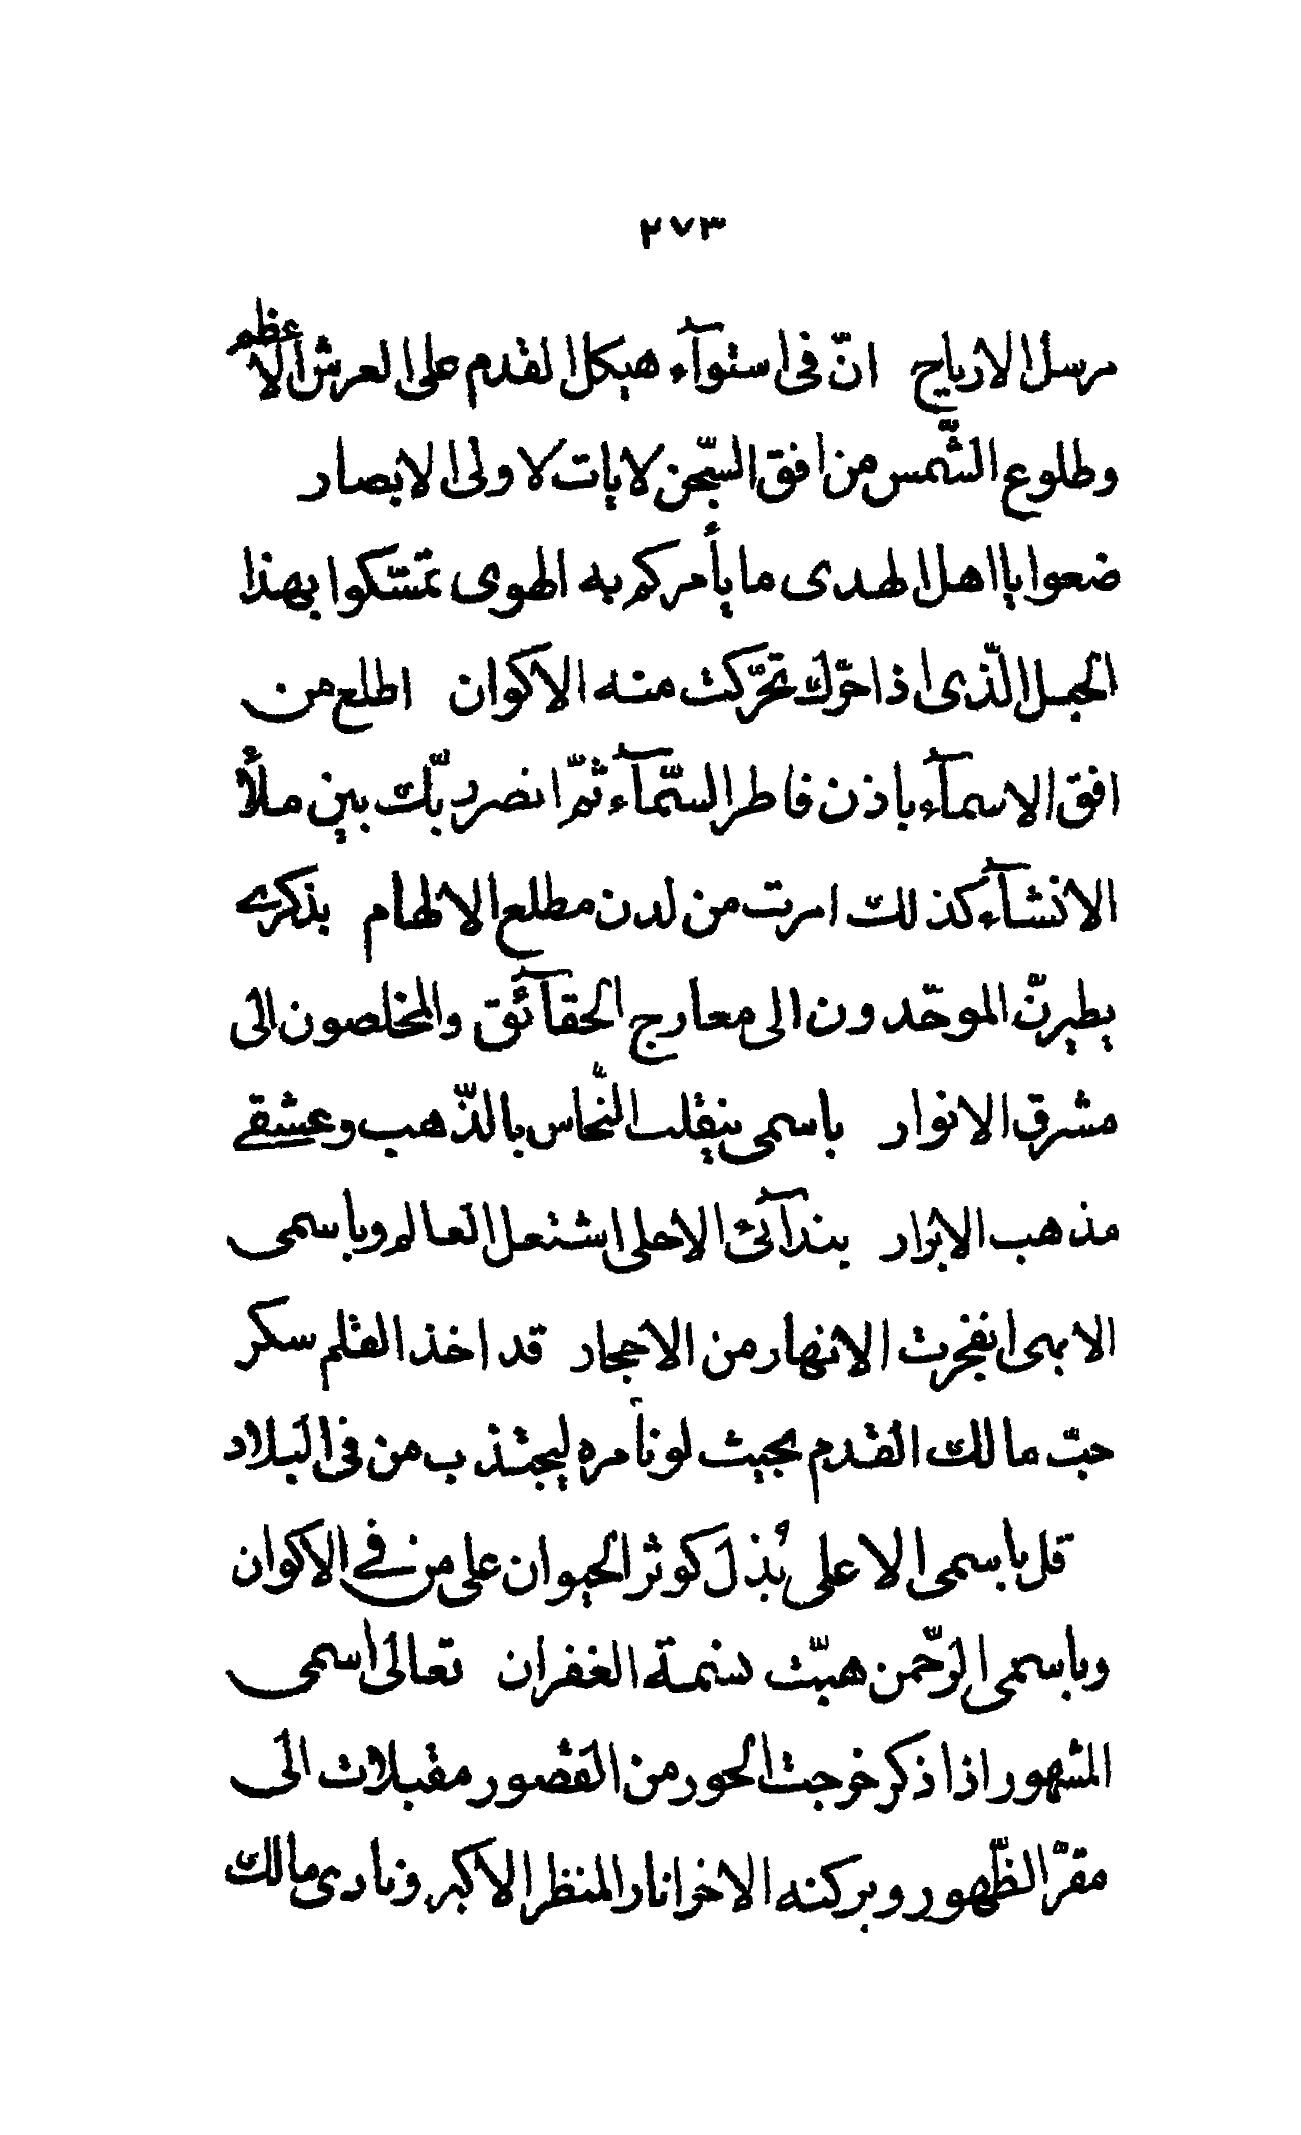 ٢٧٣
مرسل الارياح انّ فى استوآء هيكل القدم على العرش الاعظم
وطلوع الشّمس من افق السّجن لايات لاولى الابصار
ضعوا يا اهل الهدى ما يأمركم به الهوى تمسّكوا بهذا
الحبل الّذى اذا حرّك تحرّكت منه الاكوان اطلع من
افق الاسمآء باذن فاطر السّمآء ثمّ انصر ربّك بين ملأ
الانشآء كذلك امرت من لدن مطلع الالهام بذكرى
يطيرنّ الموحّدون الى معارج الحقآئق والمخلصون الى
مشرق الانوار باسمى ينقلب النّحاس بالذّهب وعشقى
مذهب الابرار بندآئى الاحلى اشتعل العالم وباسمى
الابهى انفجرت الانهار من الاحجار قد اخذ القلم سكر
حبّ مالك القدم بحيث لو نأمره ليجتذب من فى البلاد
قل باسمى الاعلى بُذل كوثر الحيوان على من فى الاكوان
وباسمى الرّحمن هبّت نسمة الغفران تعالى اسمى
المشهور اذا ذكر خرجت الحور من القصور مقبلات الى
مقرّ الظّهور وبركنه الاخر انار المنظر الاكبر ونادى مالك